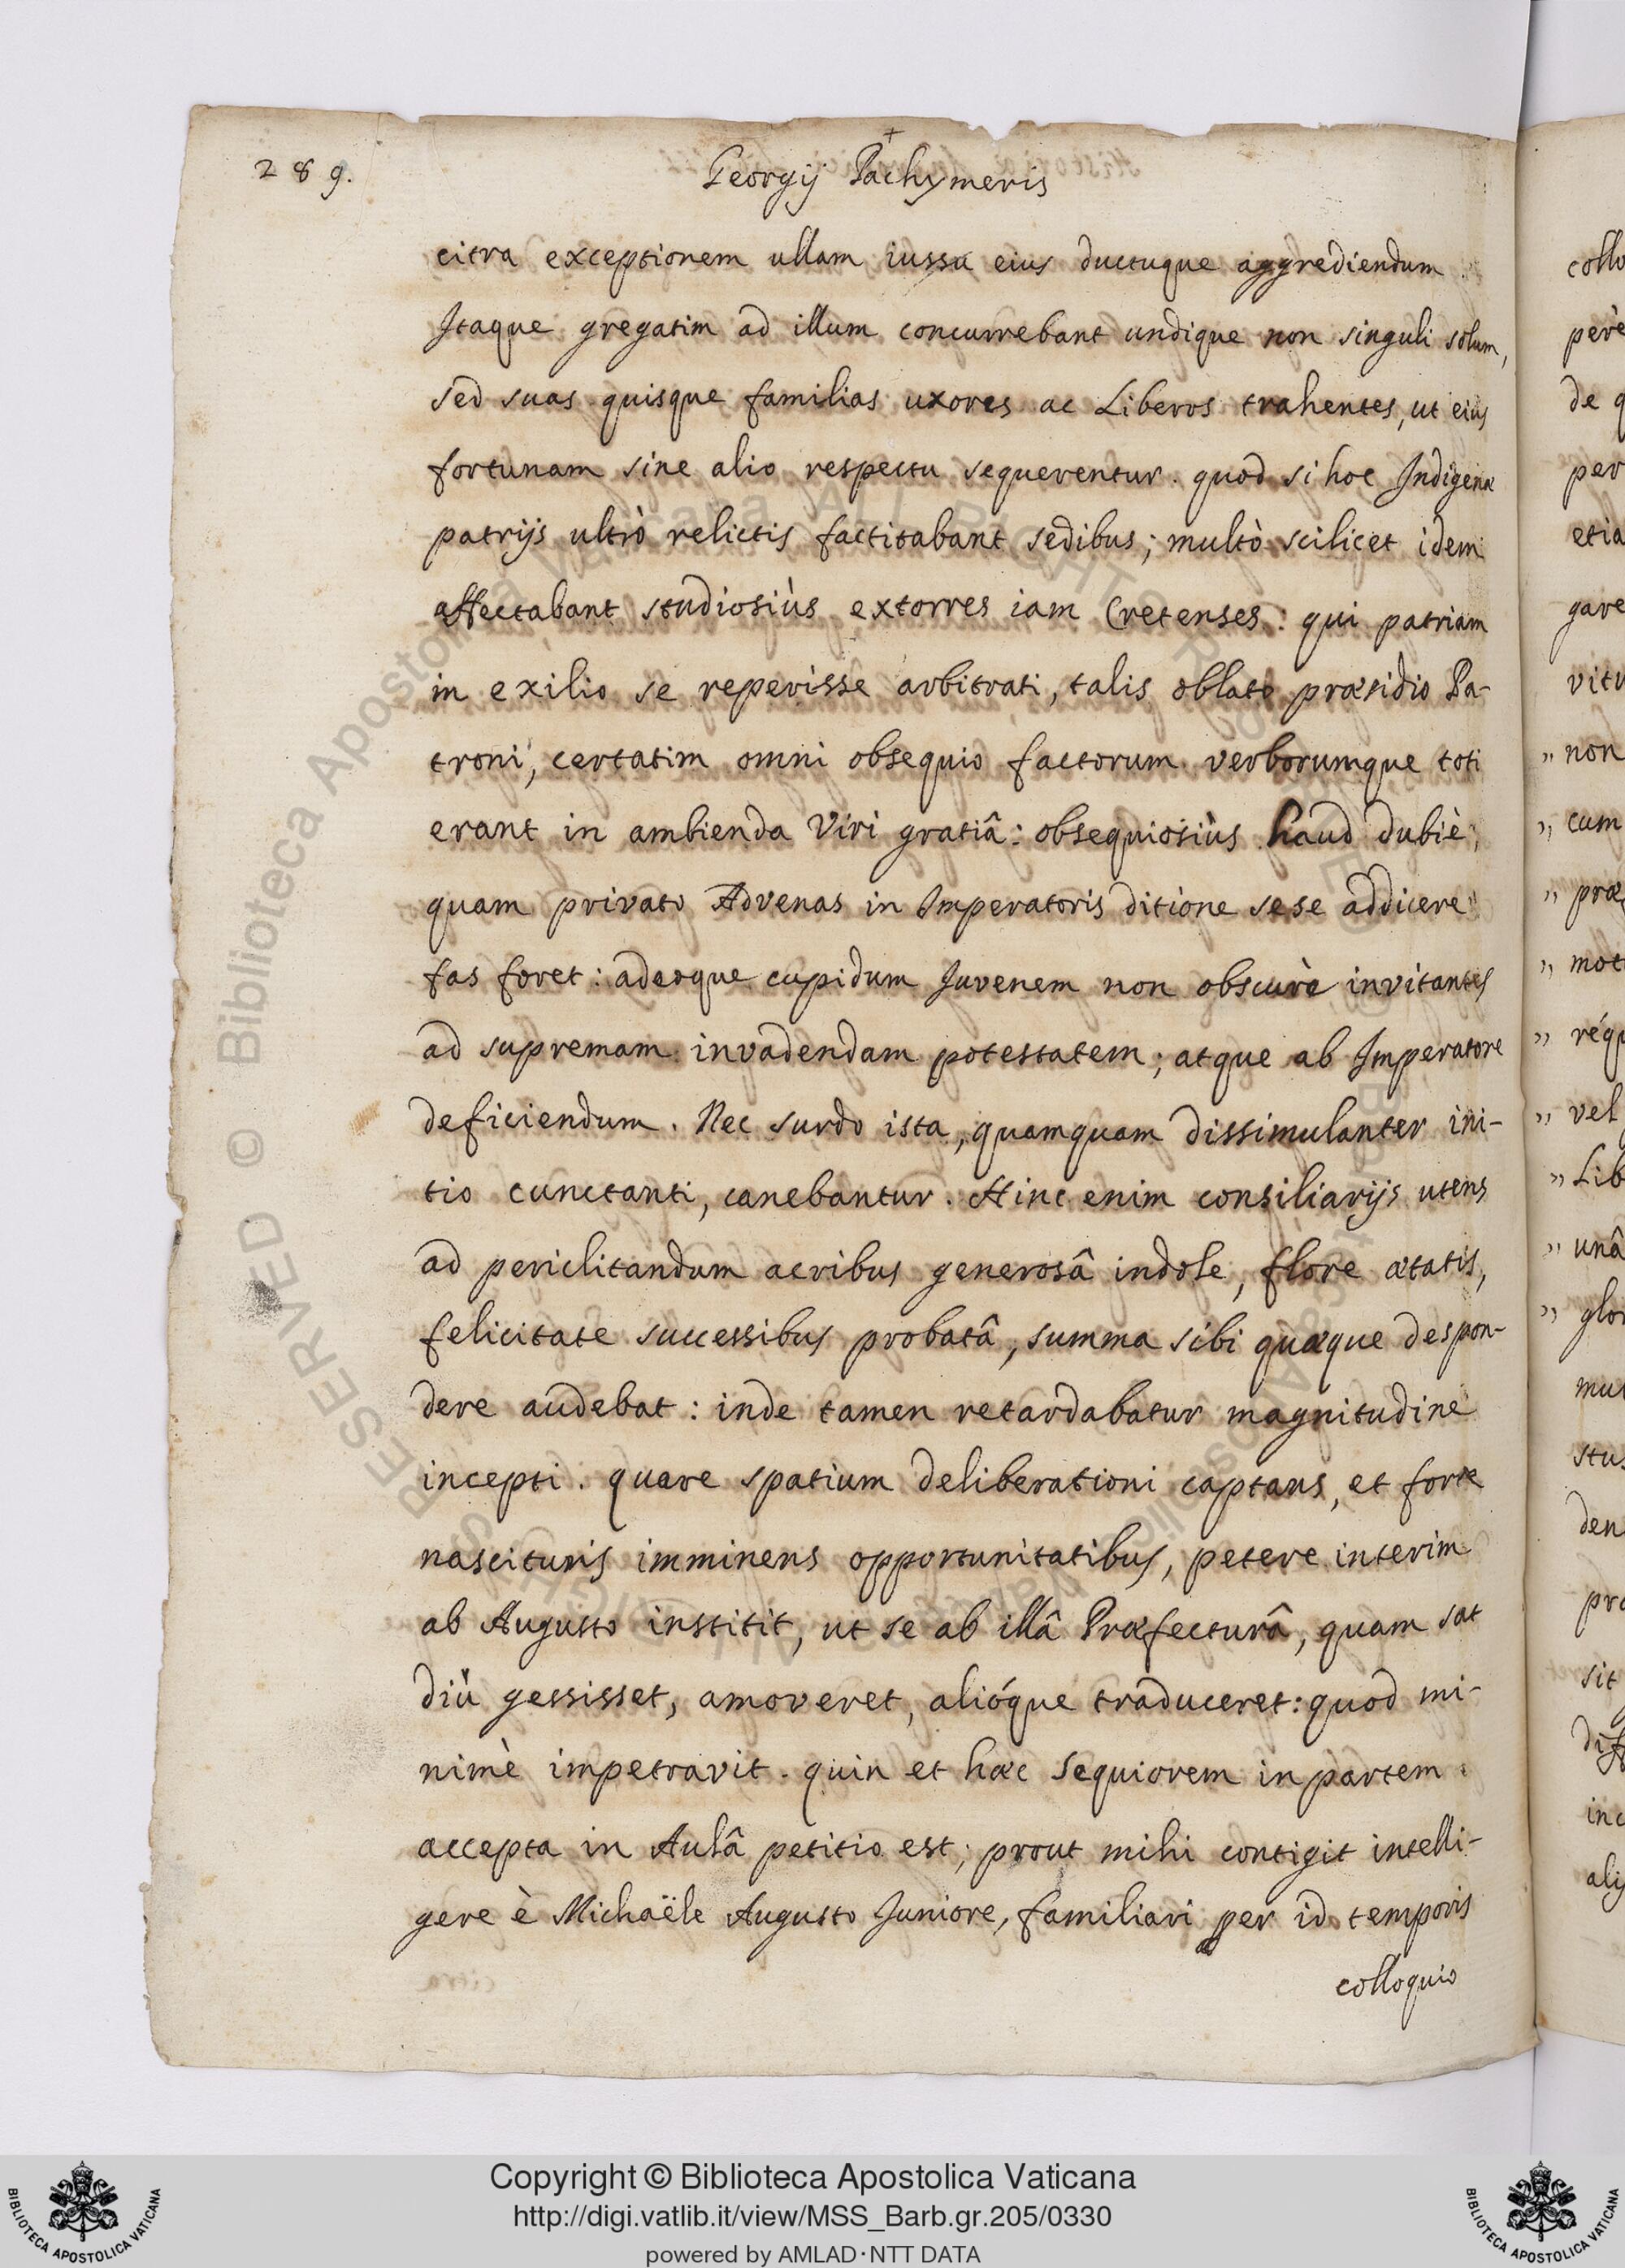 289.
Georgij Pachymeris
citra exceptionem ullam iussu eius ductuque aggrediendum.
Itaque gregatim ad illum concurrebant undique non singuli solum,
sed suas quisque familias uxores ac Liberos trahentes, ut eius
fortunam sine alio respectu sequerentur. quod si hoc Indigenæ
patrijs ultrò relictis factitabant sedibus; multò scilicet idem
affectabant studiosiùs extorres iam Cretenses: qui patriam
in exilio se reperisse arbitrati, talis oblato præsidio Pa-
troni, certatim omni obsequio factorum verborumque toti
erant in ambienda Viri gratiâ: obsequiosiùs haud dubiè,
quam privato Advenas in Imperatoris ditione sese addicere
fas foret: adeoque cupidum Juvenem non obscurè invitantes
ad supremam invadendam potestatem; atque ab Imperatore
deficiendum. Nec surdo ista, quamquam dissimulanter ini-
tio cunctanti, canebantur. Hinc enim consiliarijs utens
ad periclitandum acribus generosâ indole, flore ætatis,
felicitate successibus probatâ, summa sibi quæque despon-
dere audebat: inde tamen retardabatur magnitudine
incepti. quare spatium deliberationi captans, et forte
nascituris imminens opportunitatibus, petere interim
ab Augusto institit, ut se ab illâ Præfecturâ, quam sat
diù gessisset, amoveret, alióque traduceret: quod mi-
nimè impetravit. quin et hæc sequiorem in partem
accepta in Aulâ petitio est; prout mihi contigit intelli-
gere è Michaële Augusto Juniore, familiari per id temporis
colloquio
collo
perè
de q
per
etia
gare
vitu
„ non
„ cum
„ præ
„ mot
„ réqu
„ vel
„ Lib
„ unâ
„ glor
mul
stus
den
pro
sit
inc
alij
© Biblioteca Apostolica Vaticana ALL RIGHTS RESERVED
Copyright © Biblioteca Apostolica Vaticana
http://digi.vatlib.it/view/MSS_Barb.gr.205/0330
powered by AMLAD·NTT DATA
BIBLIOTECA APOSTOLICA VATICANA
BIBLIOTECA APOSTOLICA VATICANA